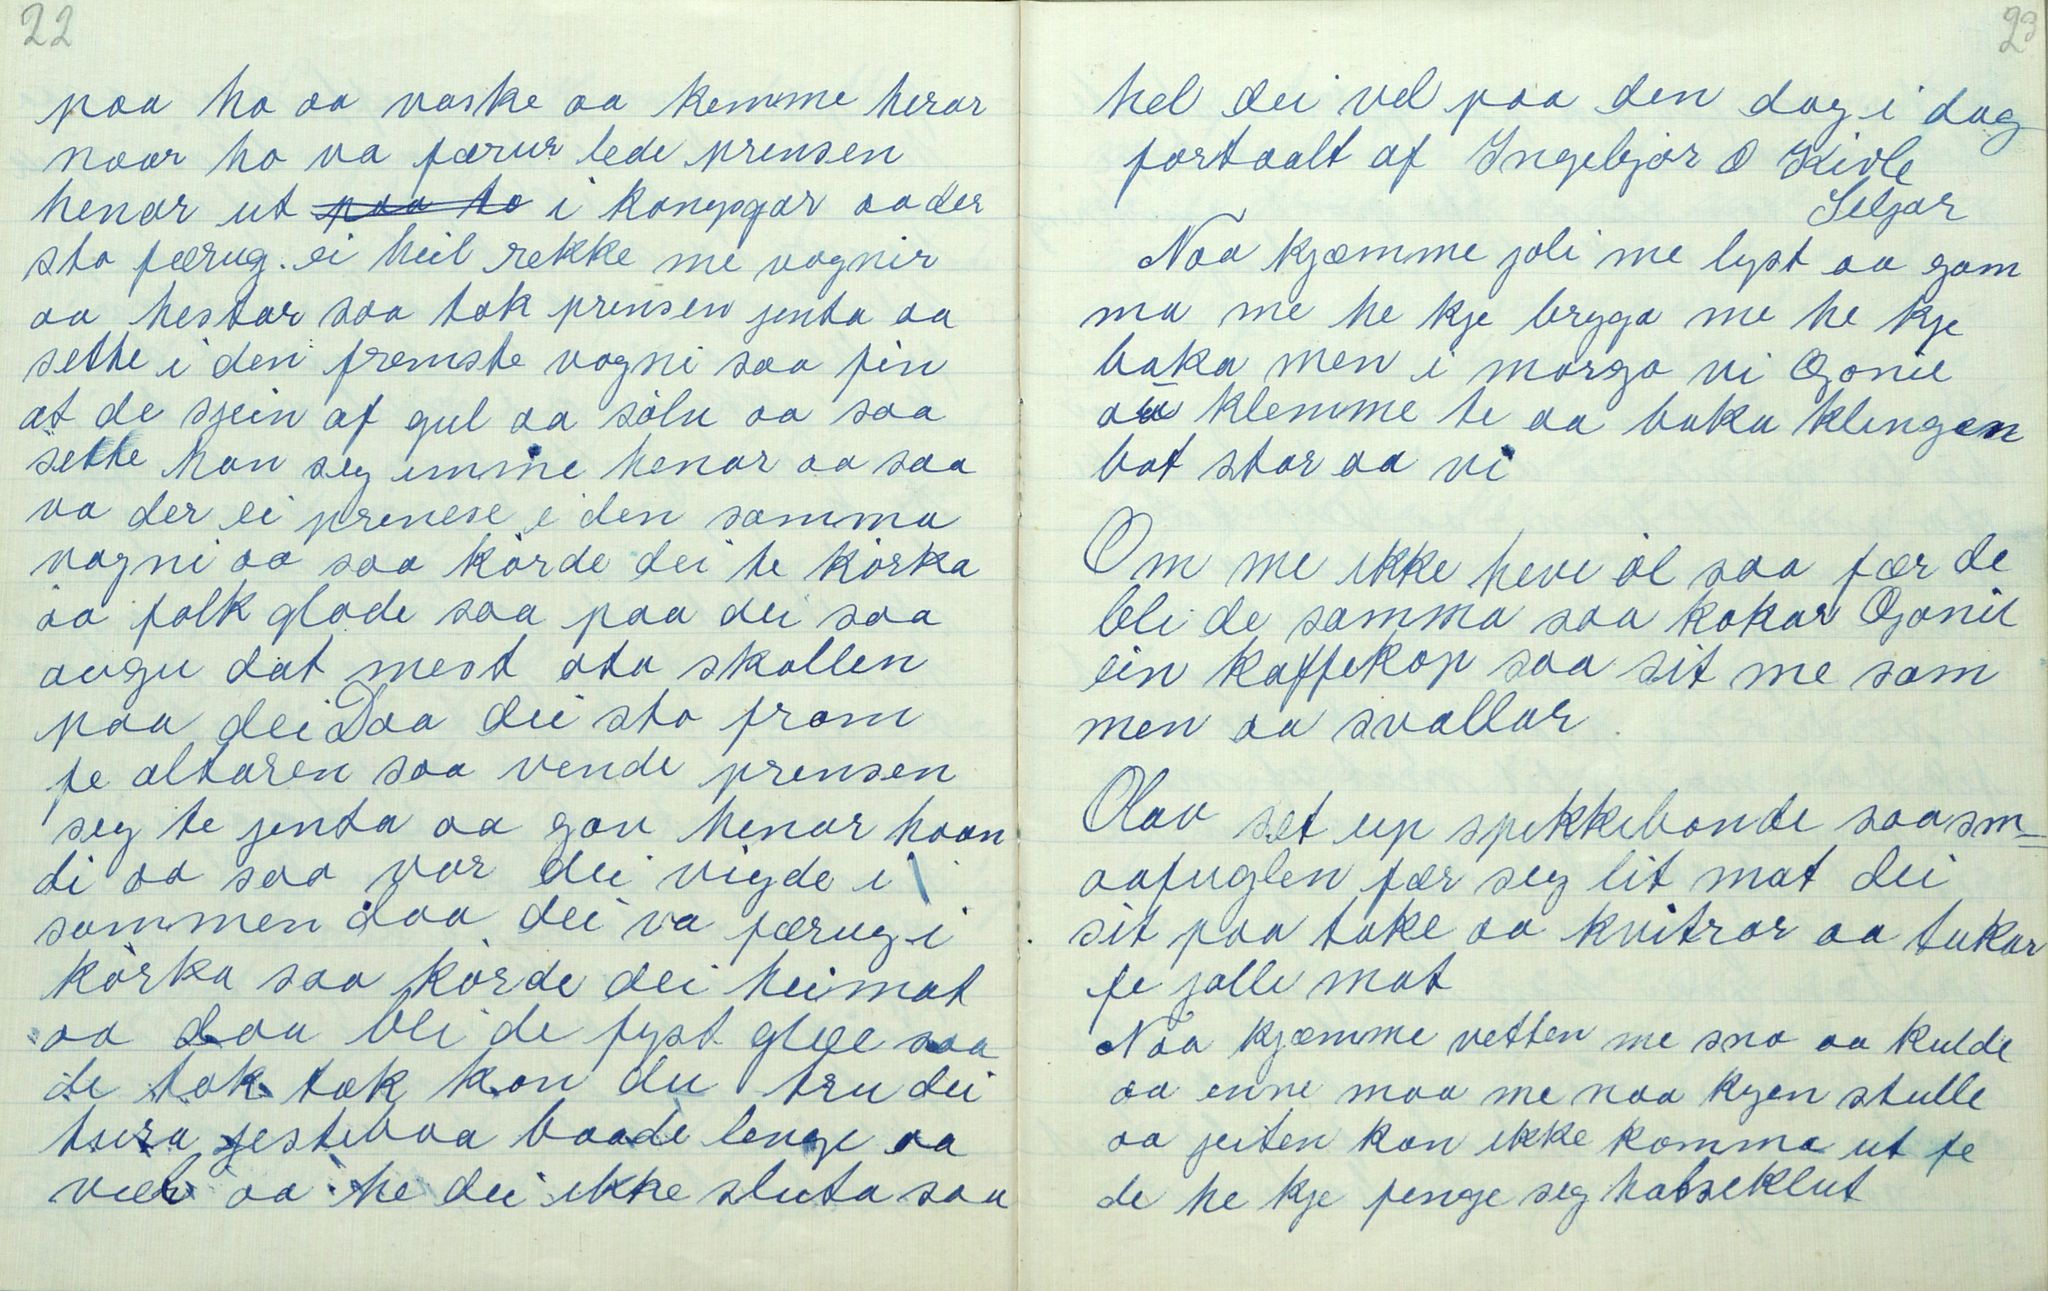 22
paa ho aa vaske aa kemme herar
naar ho va færur lede prensen
henar ut paa to i kongsgar aa der
sto færug. ei heil rekke me vognir
aa hestar saa tok prensen jenta aa
sette i den fremste vogni saa fin
at de sjein af gul aa sölv aa saa
sette han seg imme henar aa saa
va der ei prenese i den samma
vogni aa saa körde dei te körka
aa folk glode saa paa dei saa
augu dat mest ota skallen
paa dei Daa dei sto fram
fe altaren saa vende prensen
seg te jenta aa gav henar haan
di aa saa var dei vigde i
sammen daa dei va færug i
körka saa körde dei heimat
aa daa blei de fyst glee saa
de tok tak kan du tru dei
tura jesteboa baade lenge aa
vel aa he dei ikke sluta saa
23
hel dei vel paa den dag i dag
fortaalt af Ingebjör O Kivle
Seljor
Naa kjæmme joli me lyst aa gam
ma me he kje brygga me he kje
baka men i morgo vi Gonil
aa klemme te aa baka klingen
bat star aa vi
Om me ikke heve öl saa fær de
bli de samma saa kokar Gonil
ein kaffekop saa sit me sam
men aa svallar
Olav set up spikkebonde saa sm=
aafuglen fær seg lit mat dei
sit paa take aa kvitrar aa takar
fe jolle mat
Naa kjæmme vetten me sno aa kulde
aa enne maa me naa kjen stulle
aa jeiten kan ikke komma ut fe
de he kje fenge seg halseklut